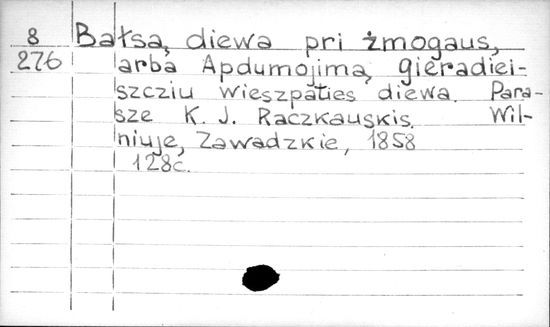 8 Bałsą, diewa pri żmogaus,
276 arba Apdumojimą, gieradiei-
szcziu wieszpaties diewa. Para-
sze K. J. Raczkauskis. Wil-
niuje, Zawadzkie, 1858
128c.